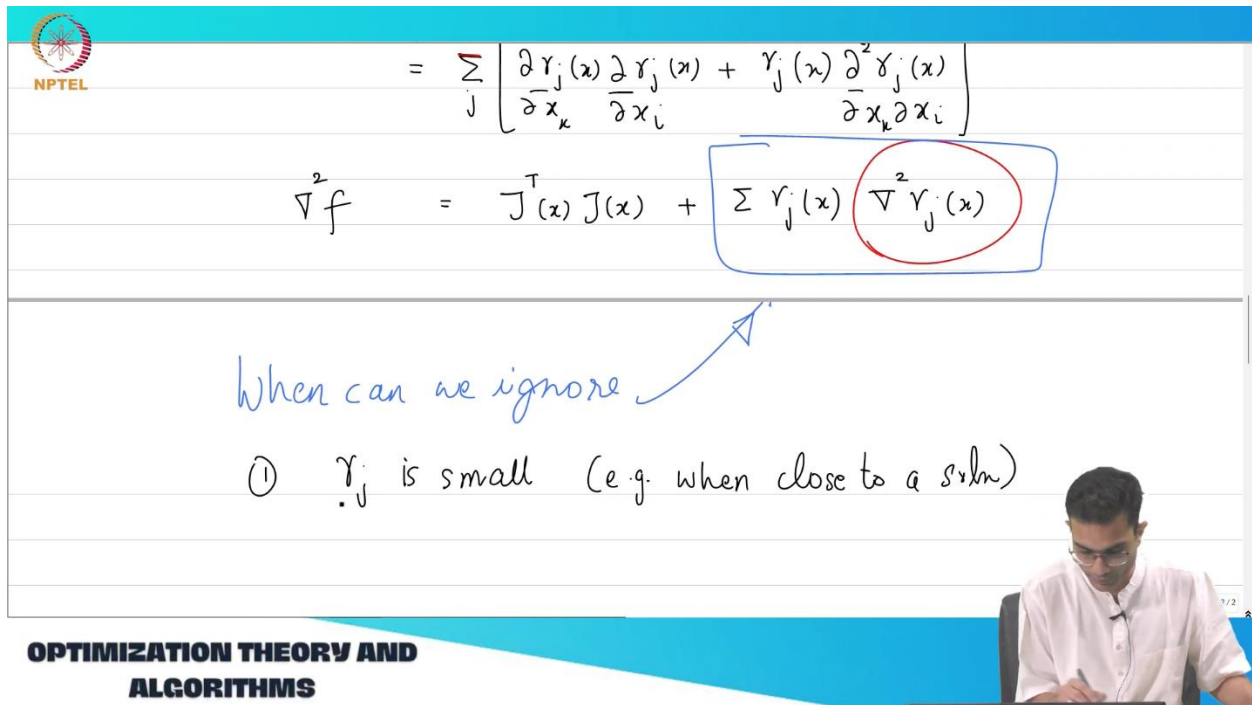 NPTEL
= Σ_j [ ∂r_j(x)/∂x_k ∂r_j(x)/∂x_i + r_j(x) ∂²r_j(x)/∂x_k∂x_i ]
∇²f = Jᵀ(x) J(x) + Σ r_j(x) ∇²r_j(x)
When can we ignore
① r_j is small (e.g. when close to a soln)
2/2
OPTIMIZATION THEORY AND
ALGORITHMS